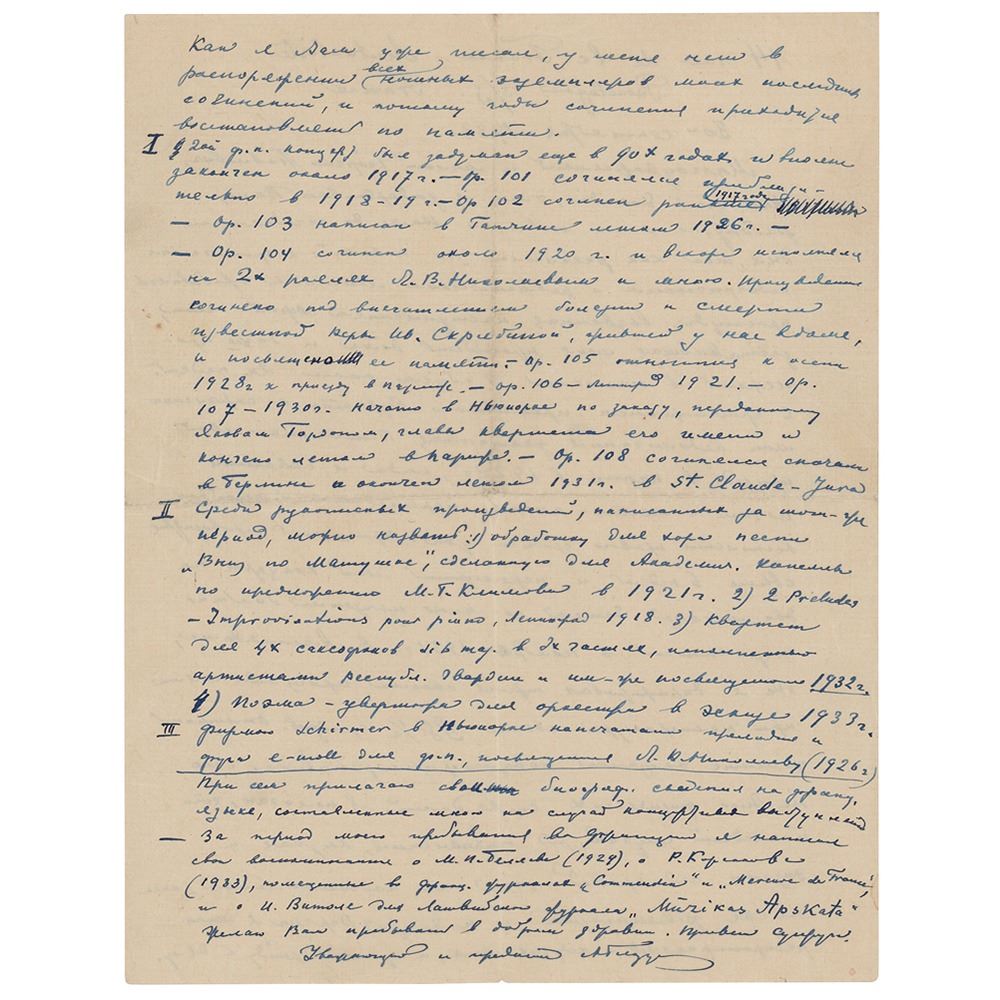 Как я Вам уже писал, у меня нет в
распоряжении всех нотных экземпляров моих последних
сочинений, и потому годы сочинения приходится
восстановлять по памяти.
I 2ой ф.п. концерт был задуман еще в 90х годах и вполне
закончен около 1917г. — Op. 101 сочинялся приблизи-
тельно в 1918-19 г. — Op 102 сочинен 1917 году
— Op. 103 написан в Гатчине летом 1926 г. —
— Op. 104 сочинен около 1920 г. и вскоре исполнялся
на 2х роялях Л. В. Николаевым и мною. Произведение
сочинено под впечатлением болезни и смерти
известной Веры Ив. Скрябиной, жившей у нас в доме,
и посвящено ее памяти. — Op. 105 относится к осени
1928г к приезду в Париж. — Op. 106 — Ленинград 1921. — Op.
107 — 1930г. начато в Нью-Йорке по заказу, переданному
Яковом Гордоном, главы квартета его имени и
кончено летом в Париже. — Op. 108 сочинялся сначала
в Берлине и окончен летом 1931г. в St. Claude — Jura
II Среди рукописных произведений, написанных за тот-же
период, можно назвать: 1) обработку для хора песни
„Вниз по Матушке", сделанную для Академич. Капеллы
по предложению М. Г. Климова в 1921 г. 2) 2 Preludes
— Improvisations pour piano, Ленинград 1918. 3) Квартет
для 4х саксофонов si b maj. в 3х частях, исполненный
артистами республ. Гвардии и им-же посвящен 1932 г.
4) Поэма — увертюра для оркестра в эскизе 1933 г.
III Фирмою Schirmer в Нью-Йорке напечатаны прелюдия и
фуга e-moll для ф.п., посвященная Л. В. Николаеву (1926 г)
При сем прилагаю свои биограф. сведения на франц.
языке, составленные мною на случай концертных выступлений
— За период моего пребывания во Франции я написал
свои воспоминания о М. П. Беляеве (1929), о Р. Корсакове
(1933), помещенные во франц. журналах „Comoedia" и „Mercure de France",
и о И. Витоле для Латвийского журнала „Mūzikas Apskata"
Желаю Вам пребывать в добром здравии. Привет супруге.
Уважающий и преданный